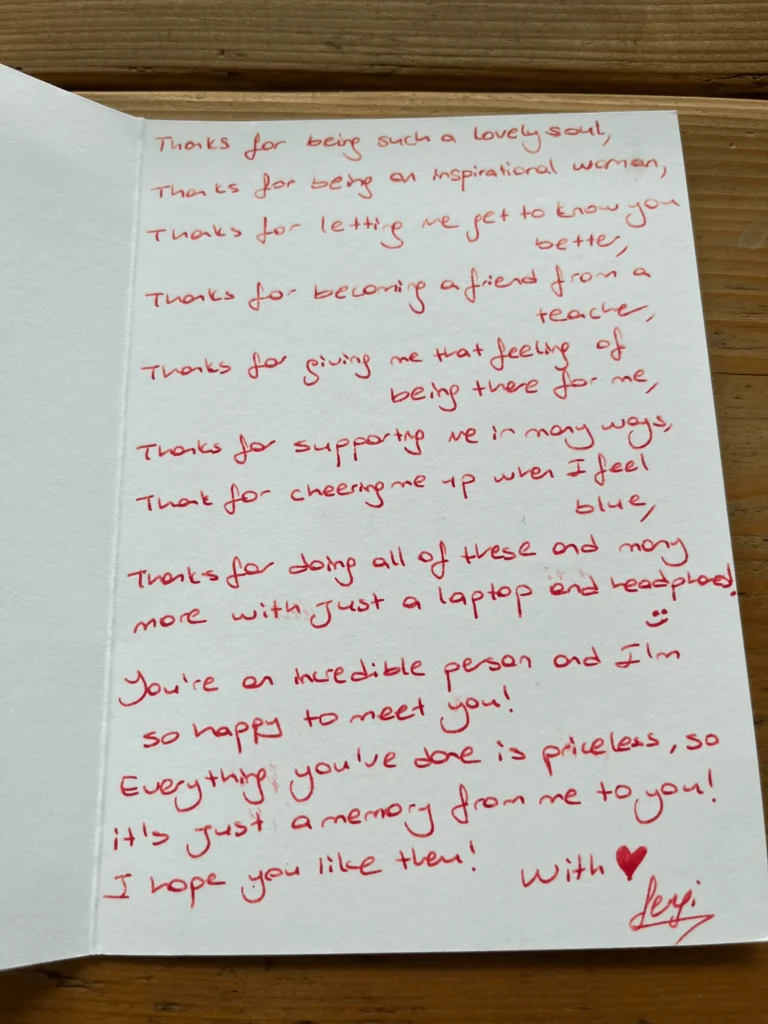 Thanks for being such a lovely soul,
Thanks for being an inspirational woman,
Thanks for letting me get to know you
better,
Thanks for becoming a friend from a
teacher,
Thanks for giving me that feeling of
being there for me,
Thanks for supporting me in many ways,
Thank for cheering me up when I feel
blue,
Thanks for doing all of these and many
more with just a laptop and
You're an incredible person and I'm
so happy to meet you!
Everything you've done is priceless, so
it's just a memory from me to you!
I hope you like them!
With ♥